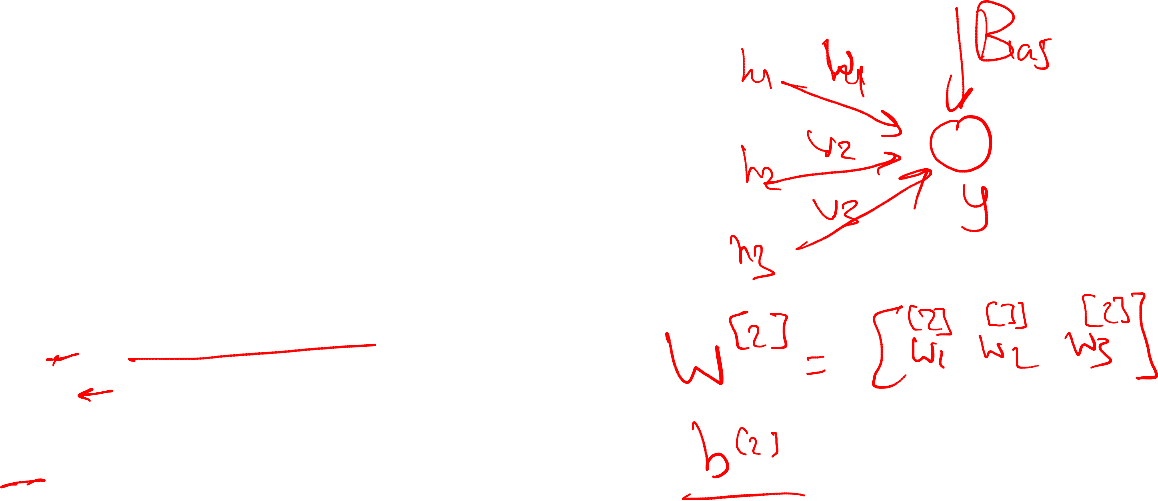 Bias
h1 w1
h2 v2
v3
y
h3
W[2] = [w1[2] w2[2] w3[2]]
b[2]